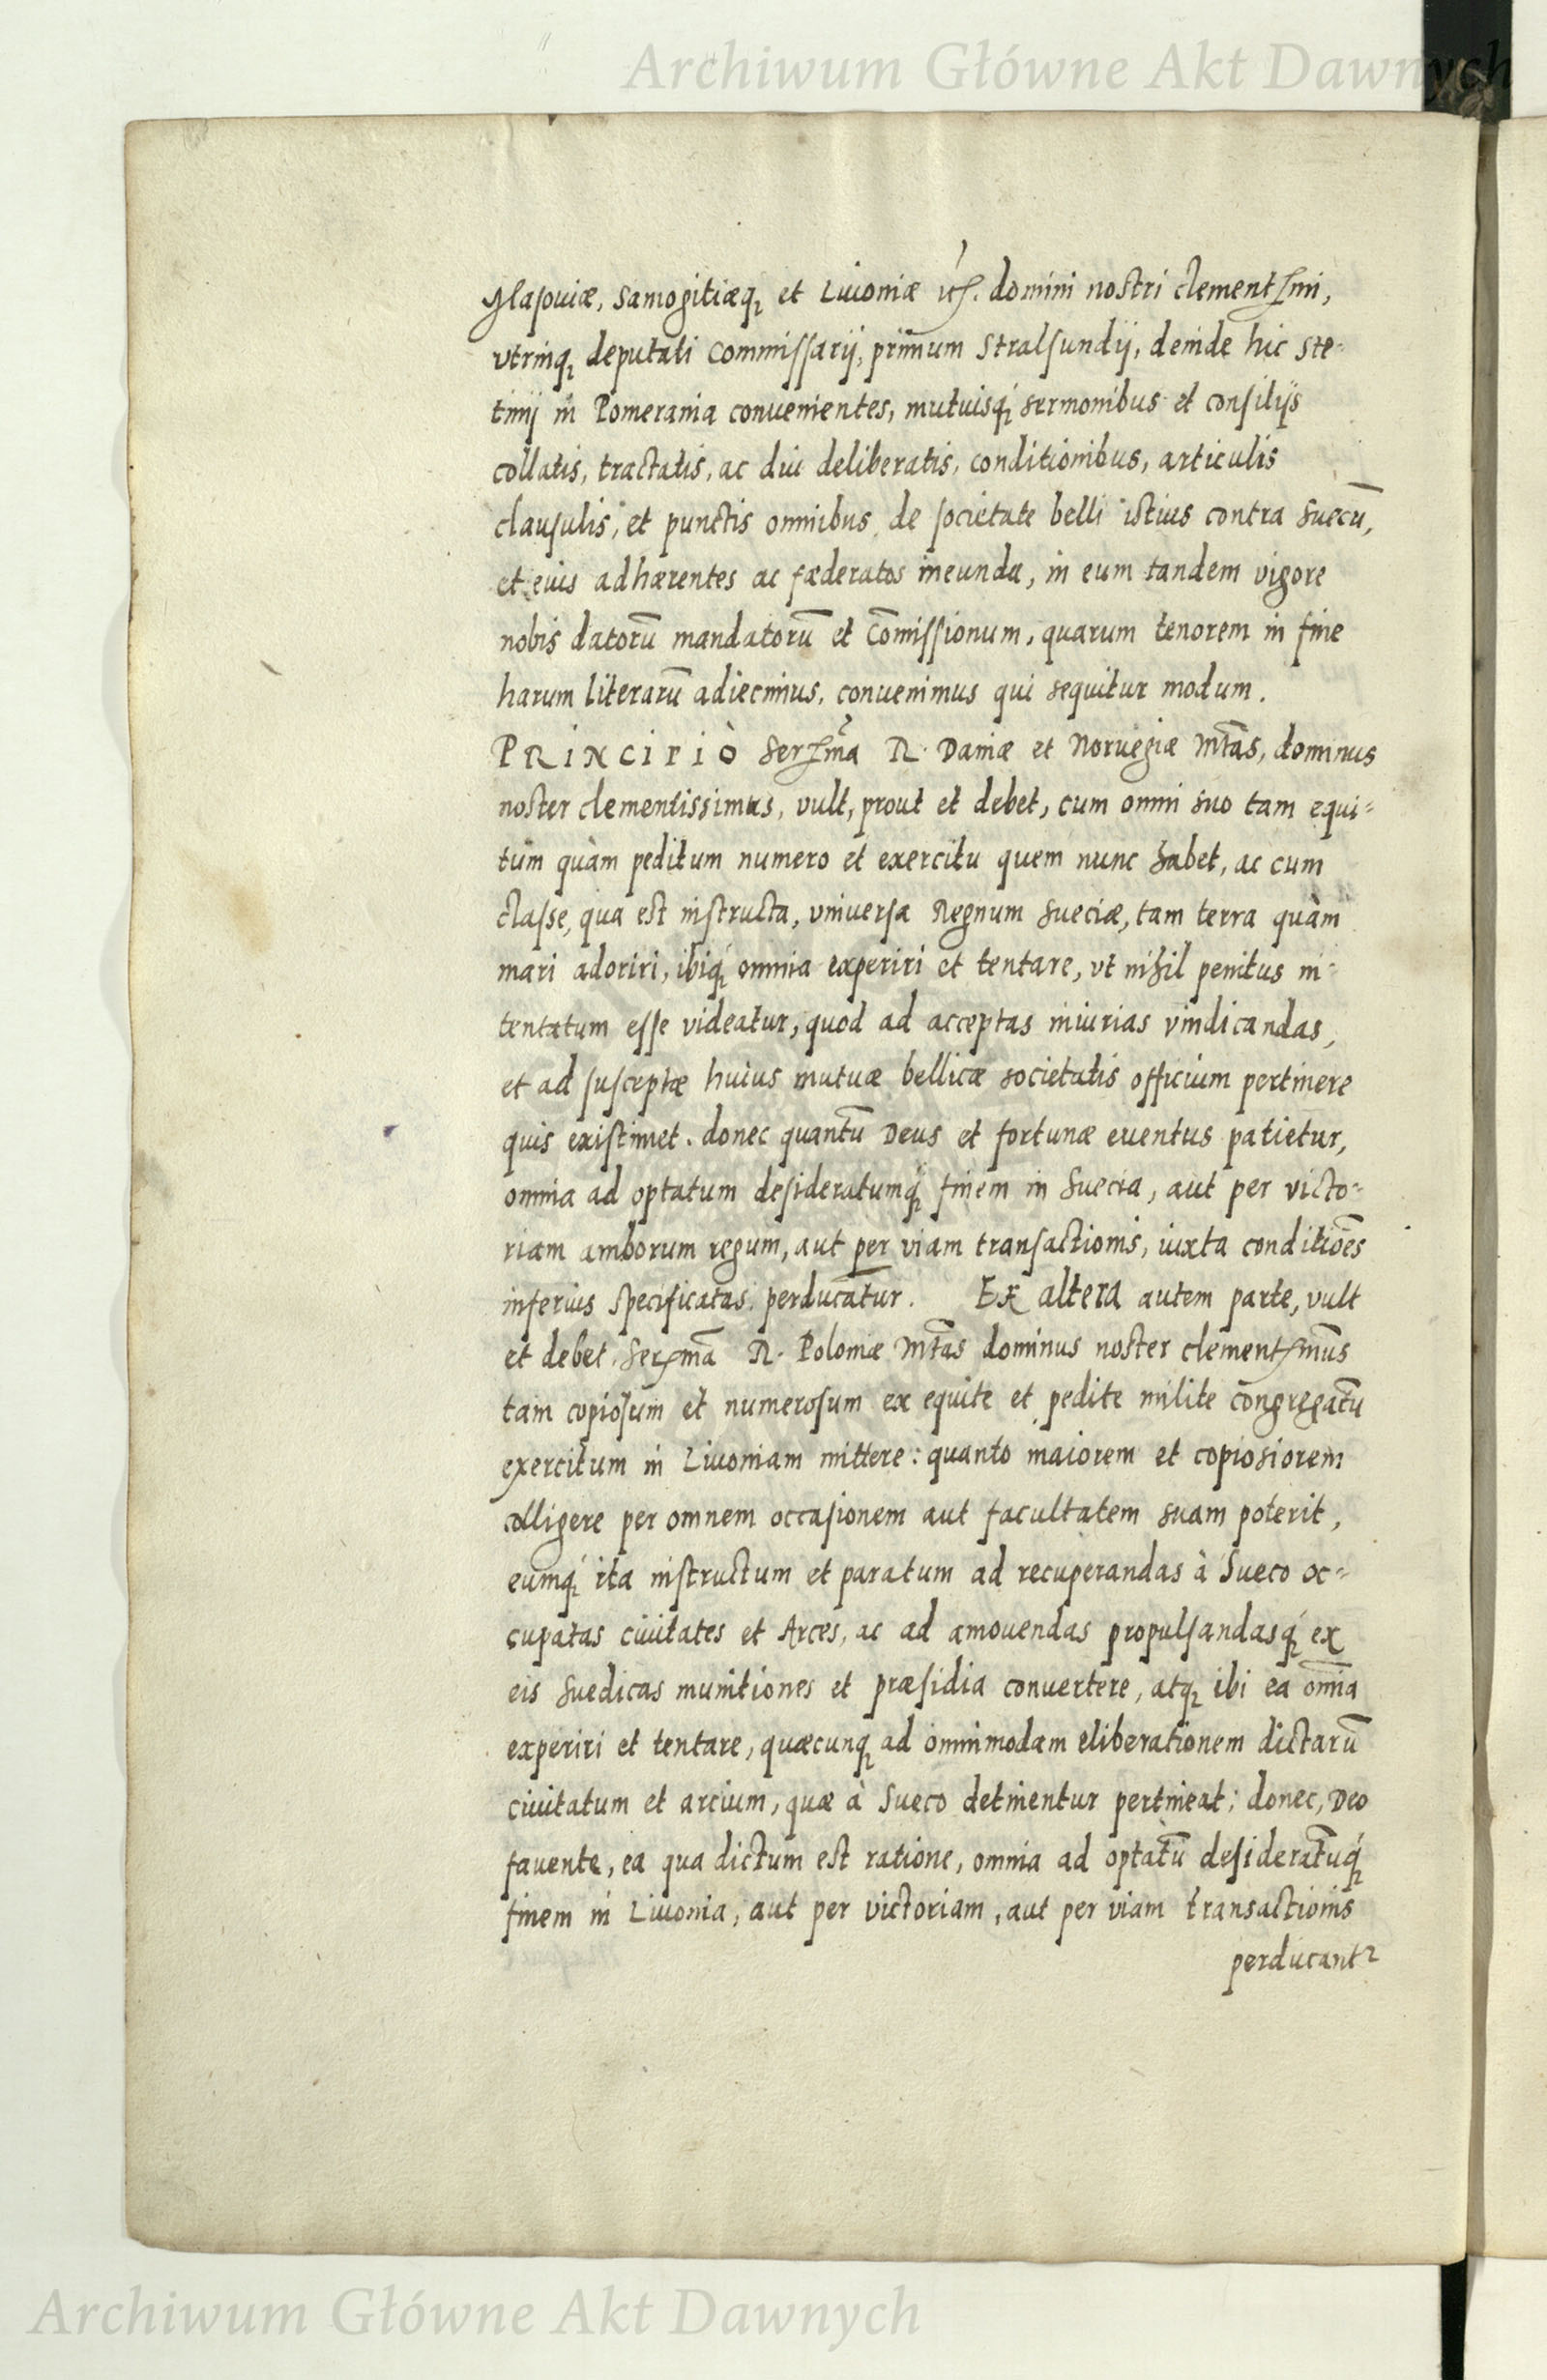 Archiwum Główne Akt Dawnych
Masouiæ, Samogitiæq₃ et Liuoniæ ꝛc. domini nostri clementſsmi,
vtrinq₃ deputati Commiſſarij, primum Stralſundij, deinde hic Ste-
tinij in Pomerania conuenientes, mutuisq́₃ sermonibus et conſilijs
collatis, tractatis, ac diu deliberatis, conditionibus, articulis
clauſulis, et punctis omnibus, de ſocietate belli istius contra Suecū,
et eius adhærentes ac fæderatos ineunda, in eum tandem vigore
nobis datorū mandatorū et Cōmiſſionum, quarum tenorem in fine
harum literarū adiecimus, conuenimus qui sequitur modum.
PRINCIPIÒ Serſma R. Daniæ et Noruegiæ Mtās, dominus
noster clementissimus, vult, prout et debet, cum omni suo tam equi-
tum quàm peditum numero et exercitu quem nunc habet, ac cum
claſse, qua est inſtructa, vniuersa Regnum Sueciæ, tam terra quàm
mari adoriri, ibiq́₃ omnia experiri et tentare, vt nihil penitus in-
tentatum eſse videatur, quod ad acceptas iniurias vindicandas,
et ad ſuſceptæ huius mutuæ bellicæ societatis officium pertinere
quis exiſtimet. donec quantū Deus et fortunæ euentus patietur,
omnia ad optatum deſideratumq́₃ finem in Suecia, aut per victo-
riam amborum regum, aut per viam tranſactionis, iuxta conditiōes
inferius specificatas perducātur. Ex altera autem parte, vult
et debet Serſmā R. Poloniæ Mtās dominus noster clementſmūs
tam copioſum et numeroſum ex equite et pedite milite congregatū
exercitum in Liuoniam mittere: quanto maiorem et copiosiorem
colligere per omnem occaſionem aut facultatem suam poterit,
eumq́₃ ita inſtructum et paratum ad recuperandas à Sueco oc-
cupatas ciuitates et Arces, ac ad amouendas propulſandasq́₃ ex
eis Suedicas munitiones et præſidia conuertere, atq₃ ibi ea om̄ia
experiri et tentare, quæcunq₃ ad omnimodam eliberationem dictarū
ciuitatum et arcium, quæ à Sueco detinentur pertineat; donec, Deo
fauente, ea qua dictum est ratione, omnia ad optatū deſideratūq́₃
finem in Liuonia, aut per victoriam, aut per viam transactionis
perducantᷣ
Archiwum Główne Akt Dawnych